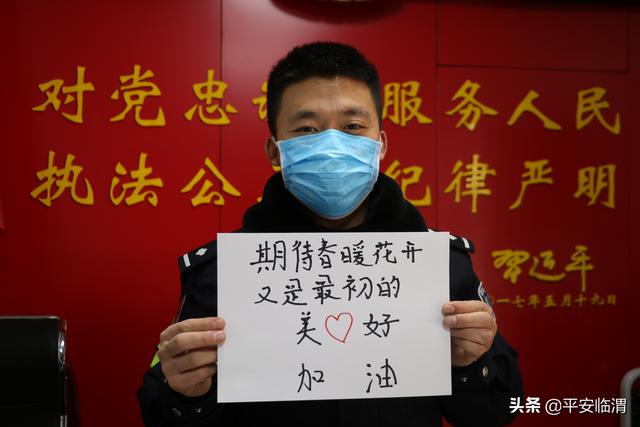 对党忠 服务人民
执法公 纪律严明
习近平
一七年五月十九日
期待春暖花开
又是最初的
美♡好
加油
头条 @平安临渭